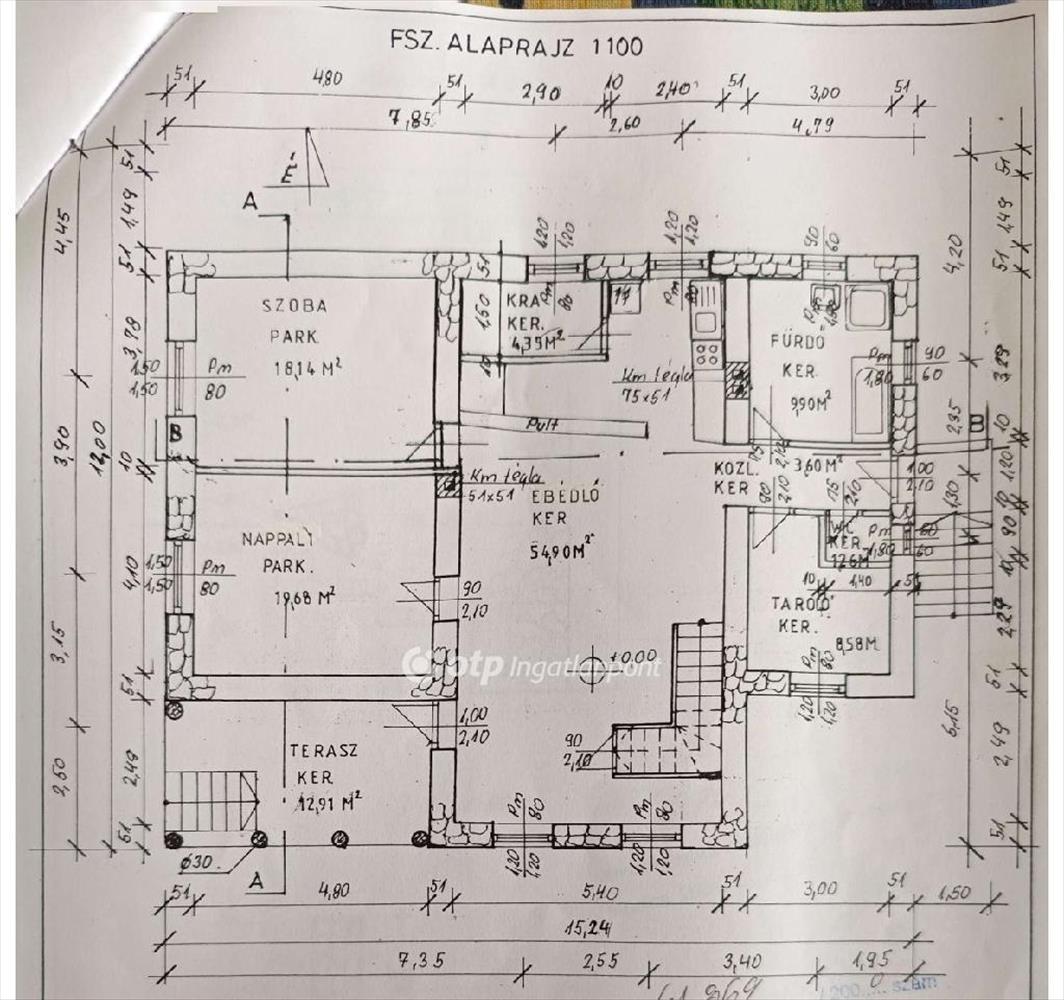 FSZ. ALAPRAJZ 1100
51 4,80 51 2,90 10 2,40 51 3,00 51
7,85 2,60 4,79
É
A
51 1,49 51 3,78 10 4,10 51 2,49 51
4,45 3,90 3,15 2,50
12,00
51 1,49 51 3,29 10 1,20 10 90 10 2,29 51 2,49 51
4,20 2,35 1,30 6,15
1,20 1,20
1,20 1,20
90 60
51
1,50
10
SZOBA
PARK
18,14 M²
1,50
1,50
Pm
80
KRA
KER.
4,35 M²
Pm
80
Pm
80
Km tégla
75x51
Pult
FÜRDŐ
KER.
9,90 M²
Pm
1,80
Pm
1,80
90
60
B
B
KÖZL.
KER
3,60 M²
75
2,10
1,00
2,10
90
2,10
75
2,10
Km tégla
51x51
ÉBÉDLŐ
KER
54,90 M²
NAPPALI
PARK.
19,68 M²
1,50
1,50
Pm
80
90
2,10
WC
KER.
1,26 M²
Pm
1,80
60
60
10 1,40 51
TÁROLÓ
KER.
8,58 M
Pm
80
1,20
1,20
±0,00
otp Ingatlanpont
1,00
2,10
90
2,10
TERASZ
KER
12,91 M²
Ø30
A
Pm
80
Pm
80
1,20
1,20
1,20
1,20
51 4,80 51 5,40 51 3,00 51 1,50
15,24
7,35 2,55 3,40 1,95
szám